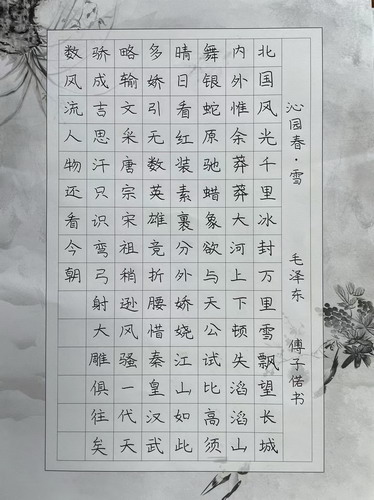 沁园春·雪 毛泽东 傅子偌书
北国风光千里冰封万里雪飘望长城
内外惟余莽莽大河上下顿失滔滔山
舞银蛇原驰蜡象欲与天公试比高须
晴日看红装素裹分外娇娆江山如此
多娇引无数英雄竞折腰惜秦皇汉武
略输文采唐宗宋祖稍逊风骚一代天
骄成吉思汗只识弯弓射大雕俱往矣
数风流人物还看今朝